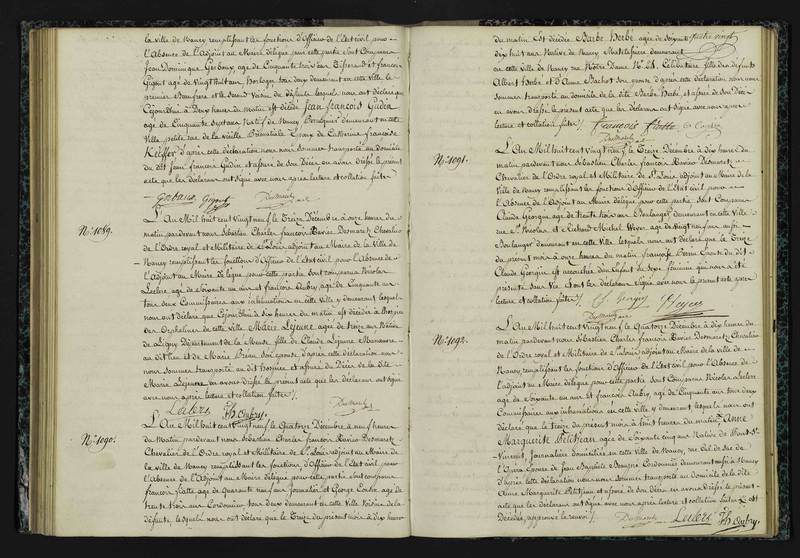 la ville de Nancy remplissant les fonctions d'Officier de l'Etat civil pour
l'Absence de l'Adjoint au Maire délégué pour cette partie sont Comparus
Jean Dominique agé de Cinquante trois ans Tisserand et françois
Gigout agé de Vingt huit ans Horloger tous deux demeurant en cette Ville le
premier Beaufrere et le Second Voisin du défunt lesquels nous ont déclaré que
Cejourdhui à Deux heures du matin est décédé Jean françois Gudin
agé de Cinquante Sept ans Natif de Nancy demeurant en cette
Ville petite rue de la vieille Epoux de Catherine françoise
Kieffer d'après cette déclaration nous nous sommes transporté au Domicile
du dit Jean françois Gudin et assuré de son Décès en avons dressé le présent
acte que les déclarans ont signé avec nous après lecture et collation faite
N.° 1089.
L'An Mil huit cent Vingt neuf le Treize Décembre à onze heures du
matin pardevant nous Sébastien Charles françois Xavier Desmarets Chevalier
de l'Ordre royal et Militaire de St Louis adjoint au Maire de la Ville de
Nancy remplissant les fonctions d'Officier de l'Etat civil pour l'Absence de
l'Adjoint au Maire délégué pour cette partie sont comparus Nicolas
Leclere agé de Soixante un ans et françois Aubry agé de Cinquante un
ans tous deux Commissaires aux inhumations en cette ville y demeurant lesquels
nous ont déclaré que Cejourdhui à dix heures du matin est décédée à l'hospice
des Orphelines de cette ville Marie Lejeune agée de treize ans Native
de Ligny Département de la Meuse fille de Claude Lejeune Manœuvre
au dit lieu et de Marie d'après cette déclaration nous
nous sommes transporté au dit hospice et assuré du Décès de la dite
Marie Lejeune en avons dressé le présent acte que les déclarans ont signé
avec nous après lecture et collation faite
Leclers Fh Aubry
N.° 1090.
L'An Mil huit cent Vingt neuf le Quatorze Décembre à neuf heures
du Matin pardevant nous Sébastien Charles françois Xavier Desmarets
Chevalier de l'Ordre royal et Militaire de St Louis adjoint au Maire de
la ville de Nancy remplissant les fonctions d'Officier de l'Etat civil pour
l'Absence de l'Adjoint au Maire délégué pour cette partie sont comparus
françois fiatte agé de Quarante neuf ans Journalier et George agé de
trente trois ans Cordonnier tous deux demeurant en cette Ville Voisins de la
défunte, lesquels nous ont déclaré que le Treize du présent mois à dix heures
du matin est décédée Barbe Herbé agée de Soixante
dix huit ans Native de Nancy Matelassiere demeurant
en cette ville de Nancy rue Notre Dame N.° Célibataire fille des défunts
Albert Herbé et d'Anne Bachot d'après cette déclaration nous nous
sommes transporté au domicile de la dite Barbe Herbé, et assuré de son Décès
en avons dressé le présent acte que les déclarans ont signé avec nous après
lecture et collation faite François fiatte
N.° 1091.
L'An Mil huit cent Vingt neuf le Treize Décembre à dix heures du
matin pardevant nous Sébastien Charles françois Xavier Desmarets
Chevalier de l'Ordre royal et Militaire de St Louis adjoint au Maire de la
Ville de Nancy remplissant les fonctions d'Officier de l'Etat civil pour
l'Absence de l'Adjoint au Maire délégué pour cette partie sont Comparus
Claude Georgin agé de trente trois ans Boulanger demeurant en cette Ville
rue St Nicolas et Richard Michel agé de Vingt neuf ans aussi
Boulanger demeurant en cette Ville lesquels nous ont déclaré que le Treize
du présent mois à onze heures du matin françoise Épouse du dit
Claude Georgin est accouchée d'un Enfant du Sexe féminin qui nous a été
présenté Sans Vie les déclarans Signé avec nous le présent acte après
lecture et collation faite
N.° 1092.
L'An Mil huit cent Vingt neuf le Quatorze Décembre à dix heures du
matin pardevant nous Sébastien Charles françois Xavier Desmarets Chevalier
de l'Ordre royal et Militaire de St Louis adjoint au Maire de la ville de
Nancy remplissant les fonctions d'Officier de l'Etat civil pour l'Absence de
l'adjoint au Maire délégué pour cette partie sont Comparus Nicolas Leclere
agé de Soixante un ans et françois Aubry agé de Cinquante un ans tous deux
Commissaires aux inhumations en cette ville y demeurant lesquels nous ont
déclaré que le treize du présent mois à huit heures du matin Anne
Marguerite Petitjean agée de Soixante cinq ans Native de Pont St
Vincent, Journaliere domiciliée en cette ville de Nancy rue
Epouse de Jean Baptiste Cordonnier demeurant aussi à Nancy
D'après cette déclaration nous nous sommes transporté au Domicile de la dite
Anne Marguerite Petitjean et assuré de son Décès en avons dressé le présent
acte que les déclarans ont signé avec nous après lecture et collation faite est
Décédée, approuvé le renvoi
Leclers Fh Aubry